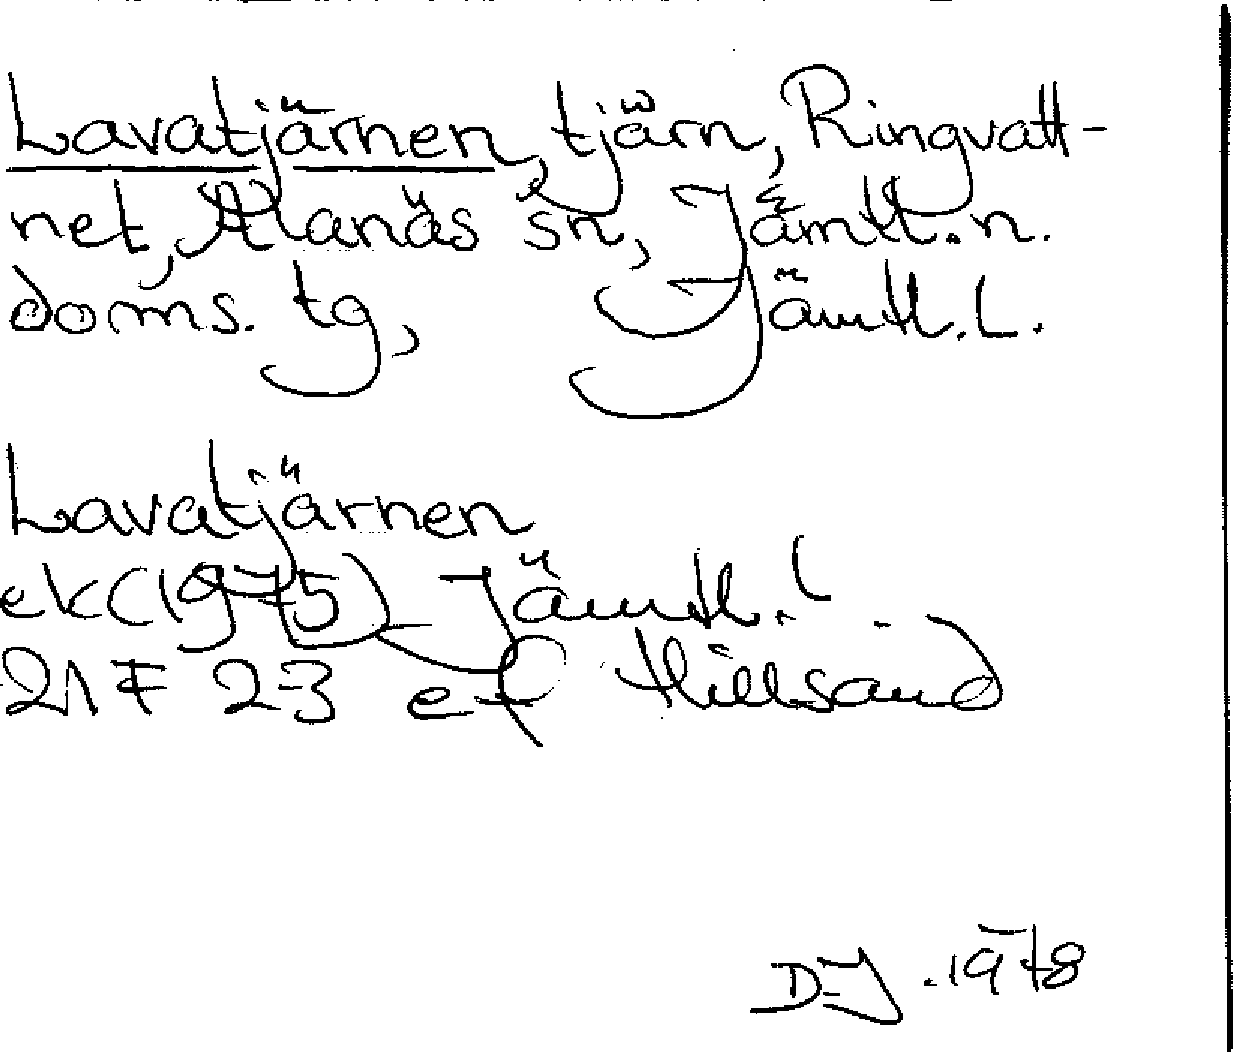 Lavatjärnen, tjärn, Ringvatt-
net, Alanäs sn, Jämtl. n.
doms. tg, Jämtl. l.
Lavatjärnen
ek (1975) Jämtl. l
21 F 23 ef Hillsand
DJ. 1978